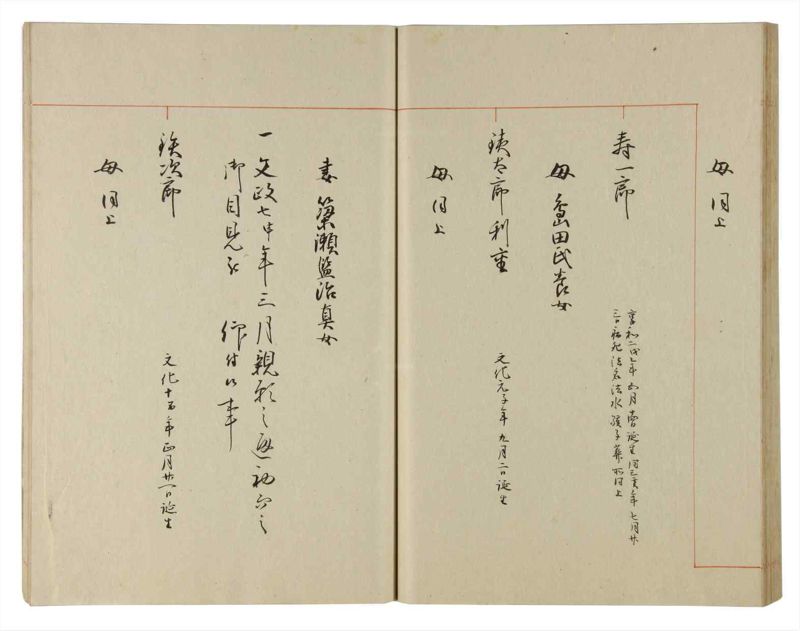 母 同上
寿一郎
享和二戌年 五月 誕生 同三亥年 七月廿
三日病死 法名法水 孩子 葬所同上
母 島田氏養女
鉄太郎 利重
文化元子年 九月二日誕生
母 同上
妻 簗瀬監治真女
一 文政七申年三月親願之通初而之
御目見被 仰付候事
鉄次郎
文化十五年正月廿一日誕生
母 同上